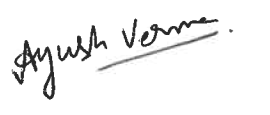 Ayush Verma